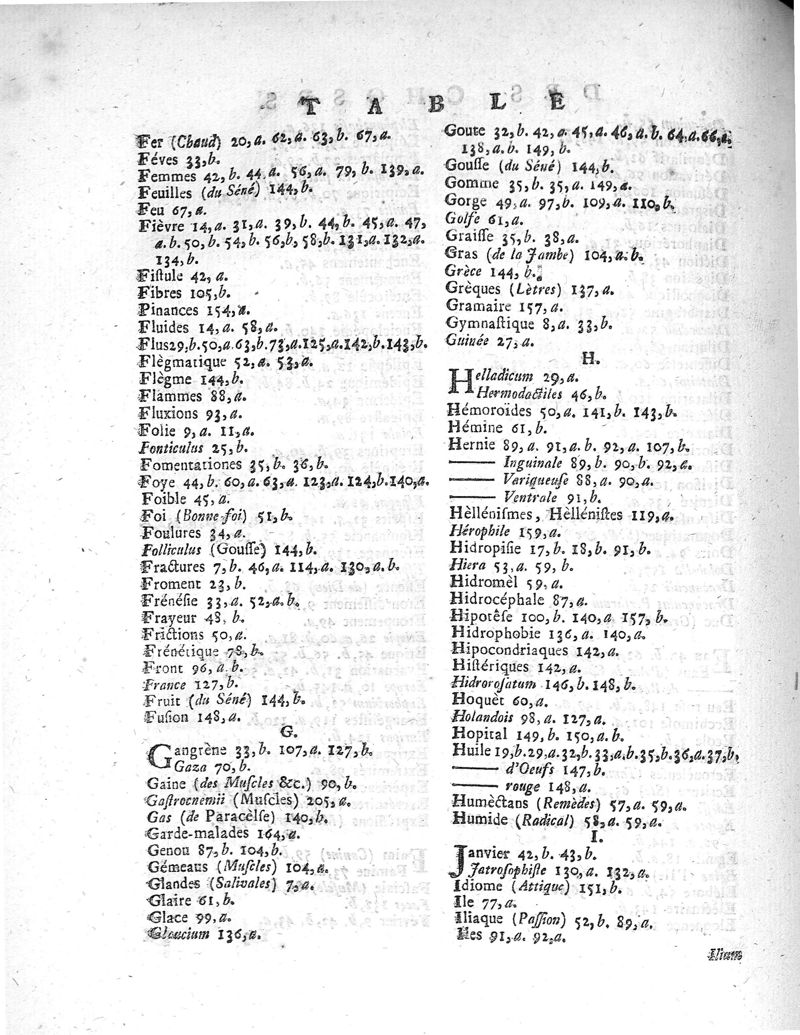 T A B L E
Fer (Chaud) 20, a. 62, a. 63, b. 67, a.
Féves 33, b.
Femmes 42, b. 44, a. 56, a. 79, b. 139, a.
Feuilles (du Séné) 144, b.
Feu 67, a.
Fièvre 14, a. 31, a. 39, b. 44, b. 45, a. 47,
a. b. 50, b. 54, b. 56, b, 58, b. 131, a. 132, a.
134, b.
Fiſtule 42, a.
Fibres 105, b.
Pinances 154, a.
Fluides 14, a. 58, a.
Flus 29, b. 50, a. 63, b. 73, a. 125, a. 142, b. 143, b.
Flègmatique 52, a. 53, a.
Flègme 144, b.
Flammes 88, a.
Fluxions 93, a.
Folie 9, a. 11, a.
Fonticulus 25, b.
Fomentationes 35, b. 36, b.
Foye 44, b. 60, a. 63, a. 123, a. 124, b. 140, a.
Foible 45, a.
Foi (Bonne-foi) 51, b.
Foulures 34, a.
Folliculus (Gouſſe) 144, b.
Fractures 7, b. 46, a. 114, a. 130, a. b.
Froment 23, b.
Frénéſie 33, a. 52, a. b.
Frayeur 48, b.
Frictions 50, a.
Frénétique 78, b.
Front 96, a. b.
France 127, b.
Fruit (du Séné) 144, b.
Fuſion 148, a.
G.
Gangrène 33, b. 107, a. 127, b.
Gaza 70, b.
Gaine (des Muſcles &c.) 90, b.
Gaſtrocnemii (Muſcles) 205, a.
Gas (de Paracèlſe) 140, b.
Garde-malades 164, a.
Genou 87, b. 104, b.
Gémeaus (Muſcles) 104, a.
Glandes (Salivales) 7, a.
Glaire 61, b.
Glace 99, a.
Glaucium 136, a.
Goute 32, b. 42, a. 45, a. 46, a. b. 64, a. 66, a.
138, a. b. 149, b.
Gouſſe (du Séné) 144, b.
Gomme 35, b. 35, a. 149, a.
Gorge 49, a. 97, b. 109, a. 110, b.
Golfe 61, a.
Graiſſe 35, b. 38, a.
Gras (de la Jambe) 104, a. b.
Grèce 144, b.
Grèques (Lètres) 137, a.
Gramaire 157, a.
Gymnaſtique 8, a. 33, b.
Guinée 27, a.
H.
Helladicum 29, a.
Hermodactiles 46, b.
Hémoroïdes 50, a. 141, b. 143, b.
Hémine 61, b.
Hernie 89, a. 91, a. b. 92, a. 107, b.
—— Inguinale 89, b. 90, b. 92, a.
—— Variqueuſe 88, a. 90, a.
—— Ventrale 91, b.
Hèllèniſmes, Hèlléniſtes 119, a.
Hérophile 159, a.
Hidropiſie 17, b. 18, b. 91, b.
Hiera 53, a. 59, b.
Hidromèl 59, a.
Hidrocéphale 87, a.
Hipotêſe 100, b. 140, a. 157, b.
Hidrophobie 136, a. 140, a.
Hipocondriaques 142, a.
Hiſtériques 142, a.
Hidroroſatum 146, b. 148, b.
Hoquèt 60, a.
Holandois 98, a. 127, a.
Hopital 149, b. 150, a. b.
Huile 19, b. 29, a. 32, b. 33, a, b. 35, b. 36, a. 37, b.
—— d'Oeufs 147, b.
—— rouge 148, a.
Humèctans (Remèdes) 57, a. 59, a.
Humide (Radical) 58, a. 59, a.
I.
Janvier 42, b. 43, b.
Jatroſophiſte 130, a. 132, a.
Idiome (Attique) 151, b.
Ile 77, a.
Iliaque (Paſſion) 52, b. 89, a.
Iles 91, a. 92, a.
Ilium